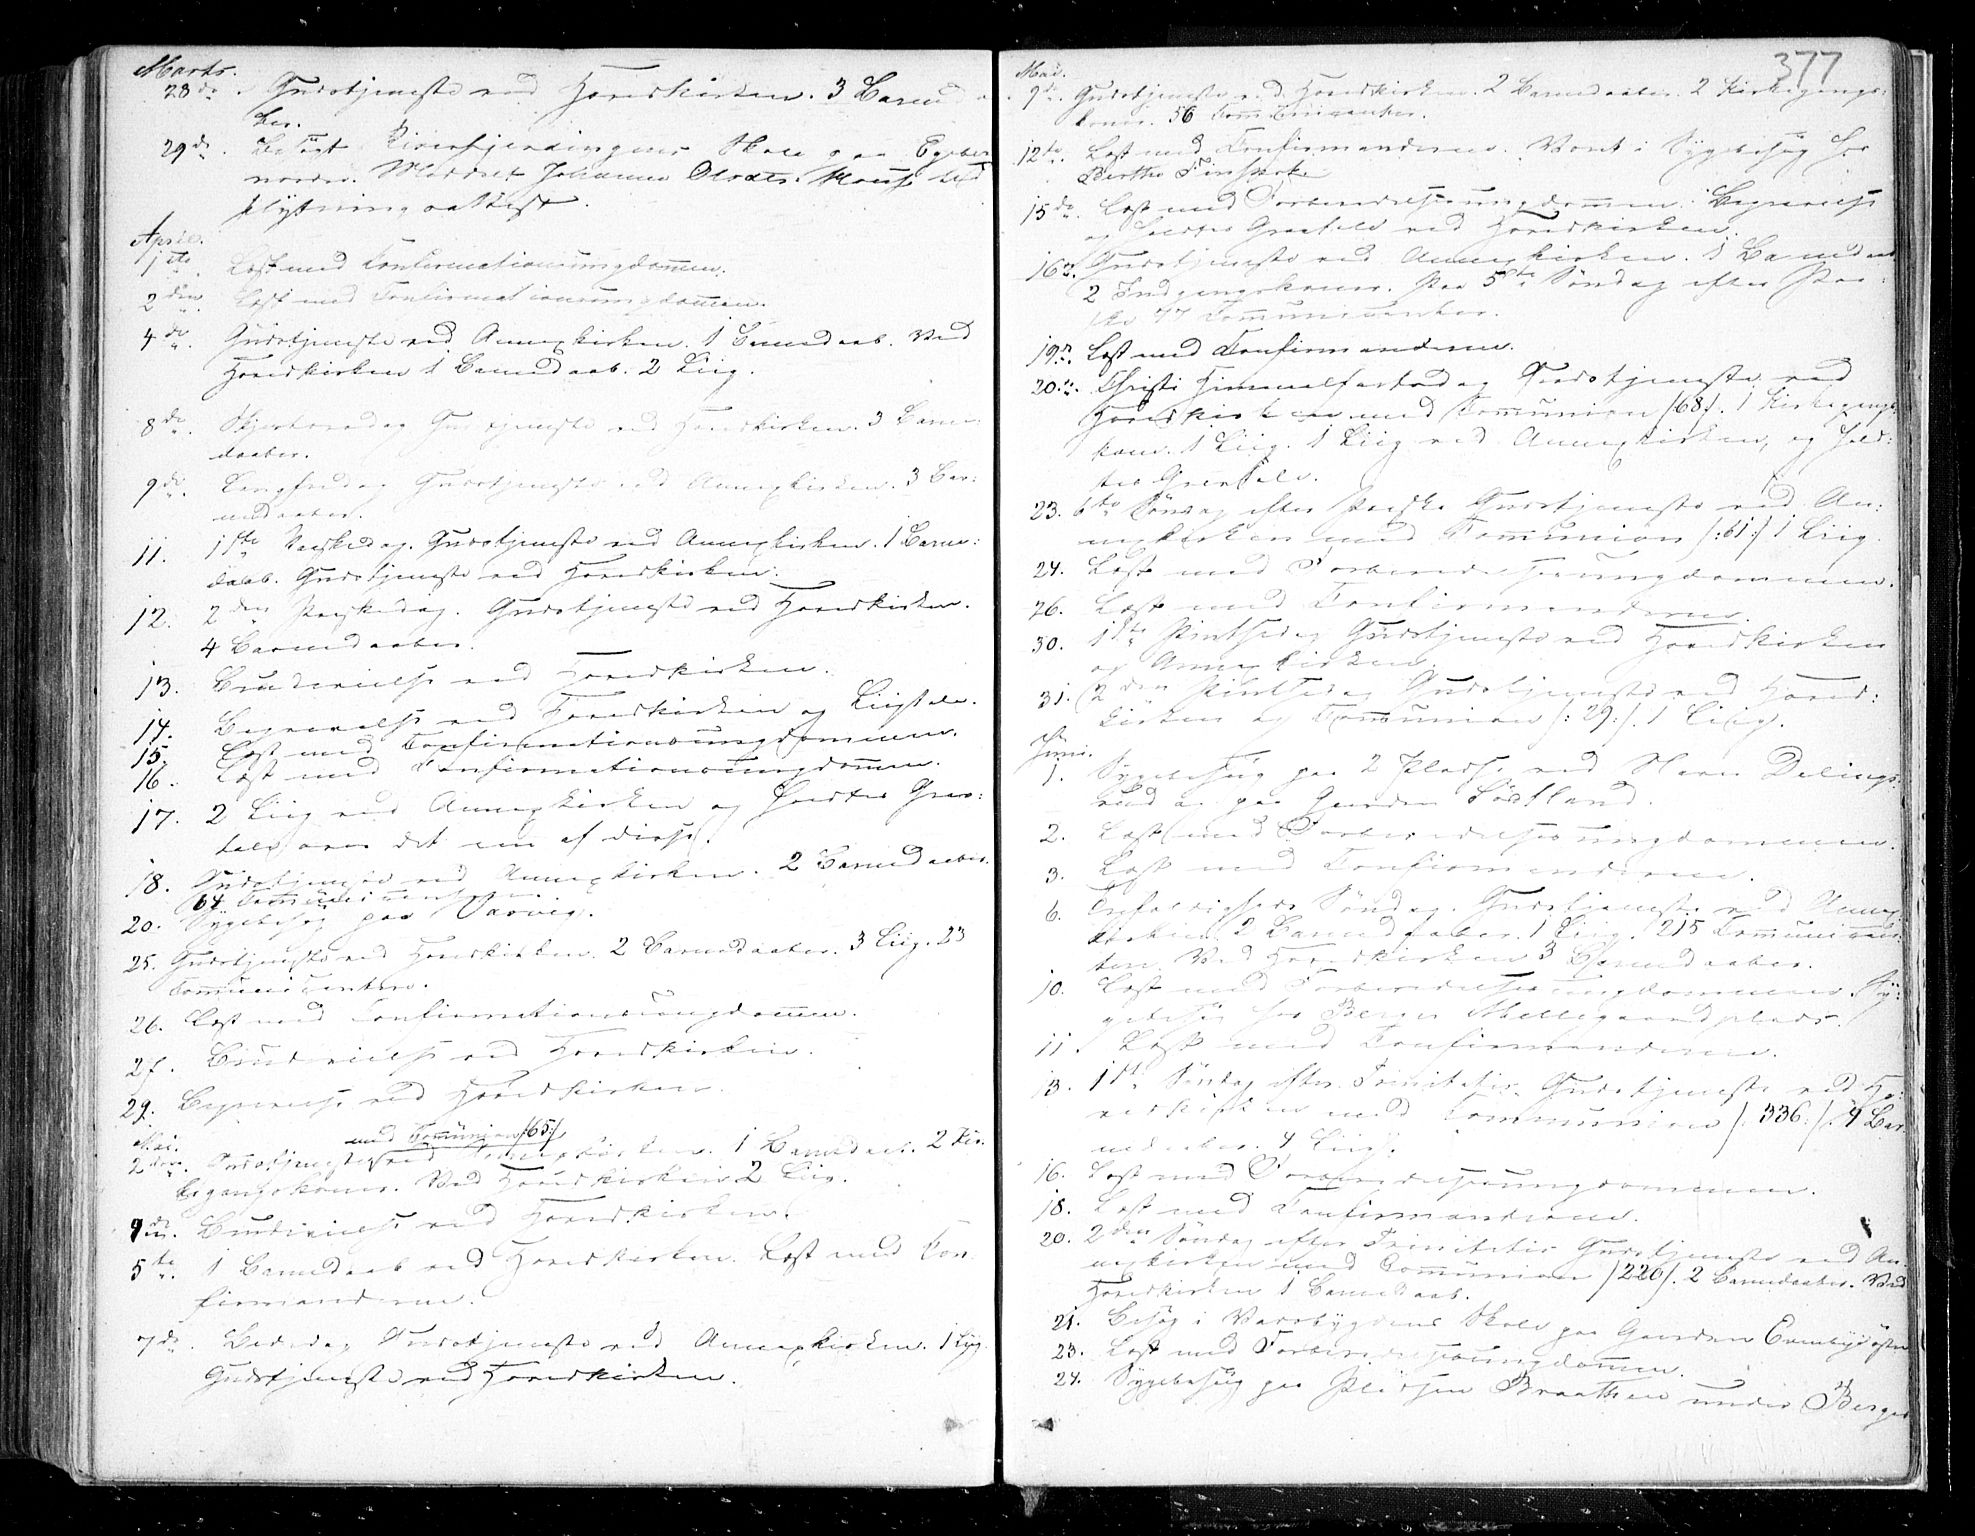 Marts.
28de. Gudstjeneste ved Hovedkirken. 3 Barnedaa
ber.
29de. Besøgt Skole paa
nordre. Meddelt Johannes Olsdtr. ud
flytningsattest.
April.
1ste. Læst med Confirmationsungdommen.
2den. Læst med Confirmationsungdommen.
4de. Gudstjeneste ved Annexkirken. 1 Barnedaab. Ved
Hovedkirken 1 Barnedaab. 2 Liig.
8de. Skjærtorsdag Gudstjeneste ved Hovedkirken. 3 Barne-
daaber.
9de. Langfredag Gudstjeneste ved Annexkirken. 3 Bar:
nedaaber.
11. 1ste Paaskedag. Gudstjeneste ved Annexkirken. 1 Barne:
daab. Gudstjeneste ved Hovedkirken.
12. 2den Paaskedag. Gudstjeneste ved Hovedkirken.
4 Barnedaaber.
13. Brudevielse ved Hovedkirken.
14. Begravelse ved Hovedkirken og Liigtale.
15. Læst med Confirmationsungdommen.
16. Læst med Confirmationsungdommen.
17. 2 Liig ved Annexkirken og holdtes Grav:
tale over det ene af disse.
18. Gudstjeneste ved Annexkirken. 2 Barnedaaber.
64 Communicenter.
20. Sygebesøg paa
25. Gudstjeneste ved Hovedkirken. 2 Barnedaaber. 3 Liig. 23
Communicenter.
26. Læst med Confirmationsungdommen.
27. Brudevielse ved Hovedkirken.
29. Begravelse ved Hovedkirken.
Mai.
med Communion /:65:/
2den. Gudstjeneste ved Annexkirken. 1 Barnedaab. 2 Kir-
kegangskoner. Ved Hovedkirken 2 Liig.
4de. Brudevielse ved Hovedkirken.
5te. 1 Barnedaab ved Hovedkirken. Læst med Con-
firmanderne.
7de. Bededag Gudstjeneste ved Annexkirken. 1 Liig.
Gudstjeneste ved Hovedkirken.
377
Mai.
9de. Gudstjeneste ved Hovedkirken. 2 Barnedaaber. 2 Kirkegangs:
koner. 56 Communicanter.
12te. Læst med Confirmanderne. Været i Sygebesøg hos
Berthe
15de. Læst med Forberedelsesungdommen. Begravelse
og holdtes Gravtale ved Hovedkirken.
16de. Gudstjeneste ved Annexkirken. 1 Barnedaab
2 Indgangskoner. Paa 5te Søndag efter Paa:
ske 77 Communicanter.
19de. Læst med Confirmanderne.
20de. Christi Himmelfartsdag Gudstjeneste ved
Hovedkirken med Communion /68/. 1 Kirkegangs
kone. 1 Liig. 1 Liig ved Annexkirken, og hold:
tes Gravtale.
23. 6te Søndag efter Paaske Gudstjeneste ved An:
nexkirken med Communion /:61:/ 1 Liig.
24. Læst med Forberedelsesungdommen.
26. Læst med Confirmanderne.
30. 1ste Pintsedag Gudstjeneste ved Hovedkirken
og Annexkirken.
31. 2den Pintsedag Gudstjeneste ved Hoved:
kirken og Communion /:29:/. 1 Liig.
Juni.
1. Sygebesøg paa 2 Pladse ved
og paa Gaarden
2. Læst med Forberedelsesungdommen.
3. Læst med Confirmanderne.
6. Trefoldigheds Søndag. Gudstjeneste ved Annex
kirken 2 Barnedaaber. 1 Liig. 215 Communican:
ter. Ved Hovedkirken 3 Barnedaaber.
10. Læst med Forberedelsesungdommen. Sy:
gebesøg hos Berger
11. Læst med Confirmanderne.
13. 1ste Søndag efter Trinitatis. Gudstjeneste ved Ho:
vedkirken med Communion /:336:/. 4 Bar
nedaaber. 4 Liig.
16. Læst med Forberedelsesungdommen.
18. Læst med Confirmanderne.
20. 2den Søndag efter Trinitatis Gudstjeneste ved An:
nexkirken med Communion /220/. 2 Barnedaaber. Ved
Hovedkirken 1 Barnedaab.
21. Besøg i Skole paa Gaarden Evenbyøstre
23. Læst med Forberedelsesungdommen.
24. Sygebesøg paa Pladsen Braathen under Berger